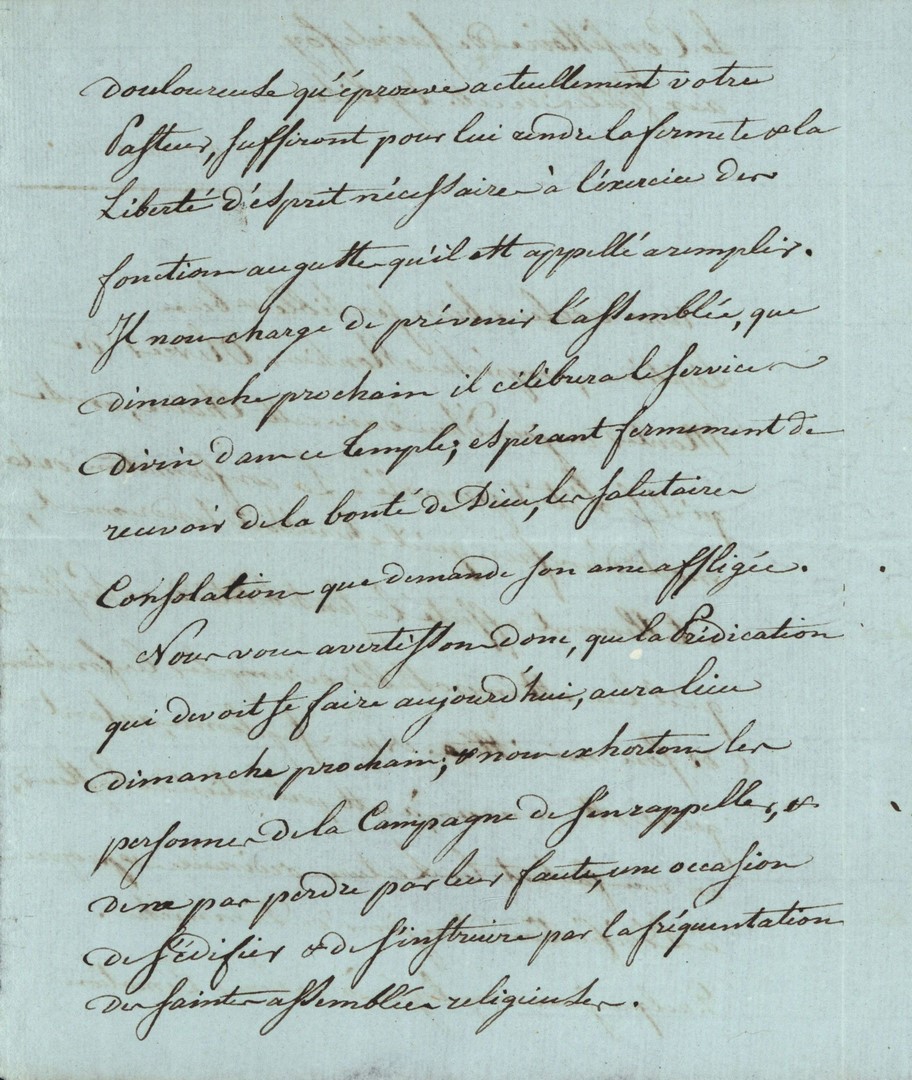 douloureuse qu'éprouve actuellement votre
Pasteur, suffiront pour lui rendre la fermeté & la
Liberté d'ésprit nécessaire à l'éxercice des
fonctions augustes qu'il est appellé a remplir.
Il nous charge de prévenir l'assemblée, que
dimanche prochain il célébrera le service
divin dans ce temple; espérant fermement de
recevoir de la bonté de Dieu, les salutaires
Consolations que demande son ame affligée.
Nous vous avertissons donc, que la Prédication
qui devoit se faire aujourd'hui, aura lieu
dimanche prochain; & nous exhortons les
personnes de la Campagne de s'en rappeller, &
de ne pas perdre par leur faute, une occasion
de s'édifier & de s'instruire par la fréquentation
des saintes assemblées religieuses.